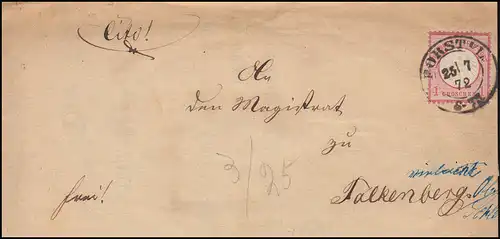 Cito!
FORST
25/7
72
1 GROSCHEN
An
den Magistrat
zu
3/25
Falkenberg
frei!